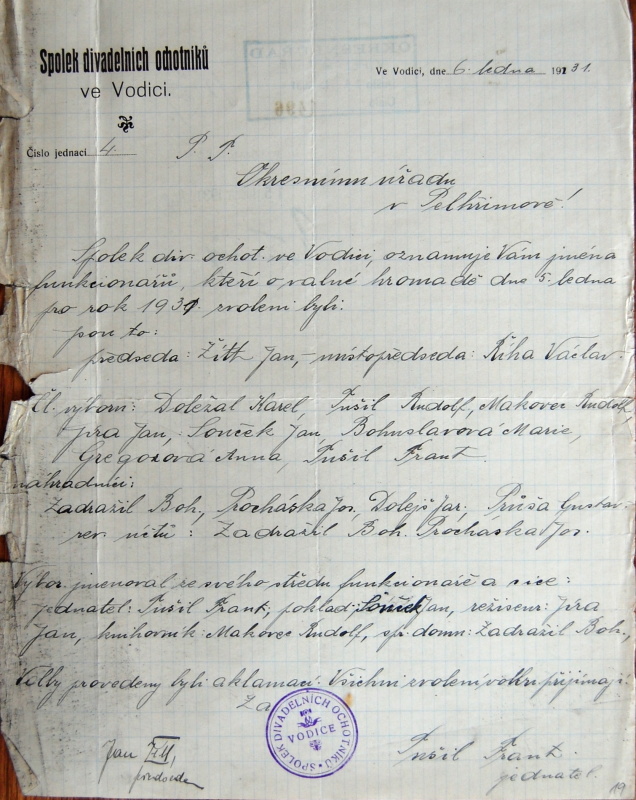 Spolek divadelních ochotníků
ve Vodici.
OKRESNÍ ÚŘAD
1496
Ve Vodici, dne 6. ledna 1931.
Číslo jednací 4.
P. T.
Okresnímu úřadu
v Pelhřimově!
Spolek div. ochot. ve Vodici, oznamuje Vám jména
funkcionářů, kteří o valné hromadě dne 5. ledna
po rok 1931. zvoleni byli.
jsou to:
předseda: Žíth Jan, - místopředseda: Říha Václav
Čl. výboru: Doležal Karel, Pušil Rudolf, Makovec Rudolf,
Jíra Jan, Souček Jan, Bohuslavová Marie,
Gregorová Anna, Pušil Frant.
náhradníci:
Zadražil Boh., Procháska Jos, Dolejš Jar, Průša Gustav
rev. účtů: Zadražil Boh. Procháska Jos.
Výbor jmenoval ze svého středu funkcionáře a sice:
jednatel: Pušil Frant, poklad: Souček Jan, režiseur: Jíra
Jan, knihovník: Makovec Rudolf, sp. domu: Zadražil Boh.,
Volby provedeny byli aklamací. Všichni zvolení volbu přijímají.
Za
SPOLEK DIVADELNÍCH OCHOTNÍKŮ
VODICE
Jan Žíth,
předseda
Pušil Frant.
jednatel.
19